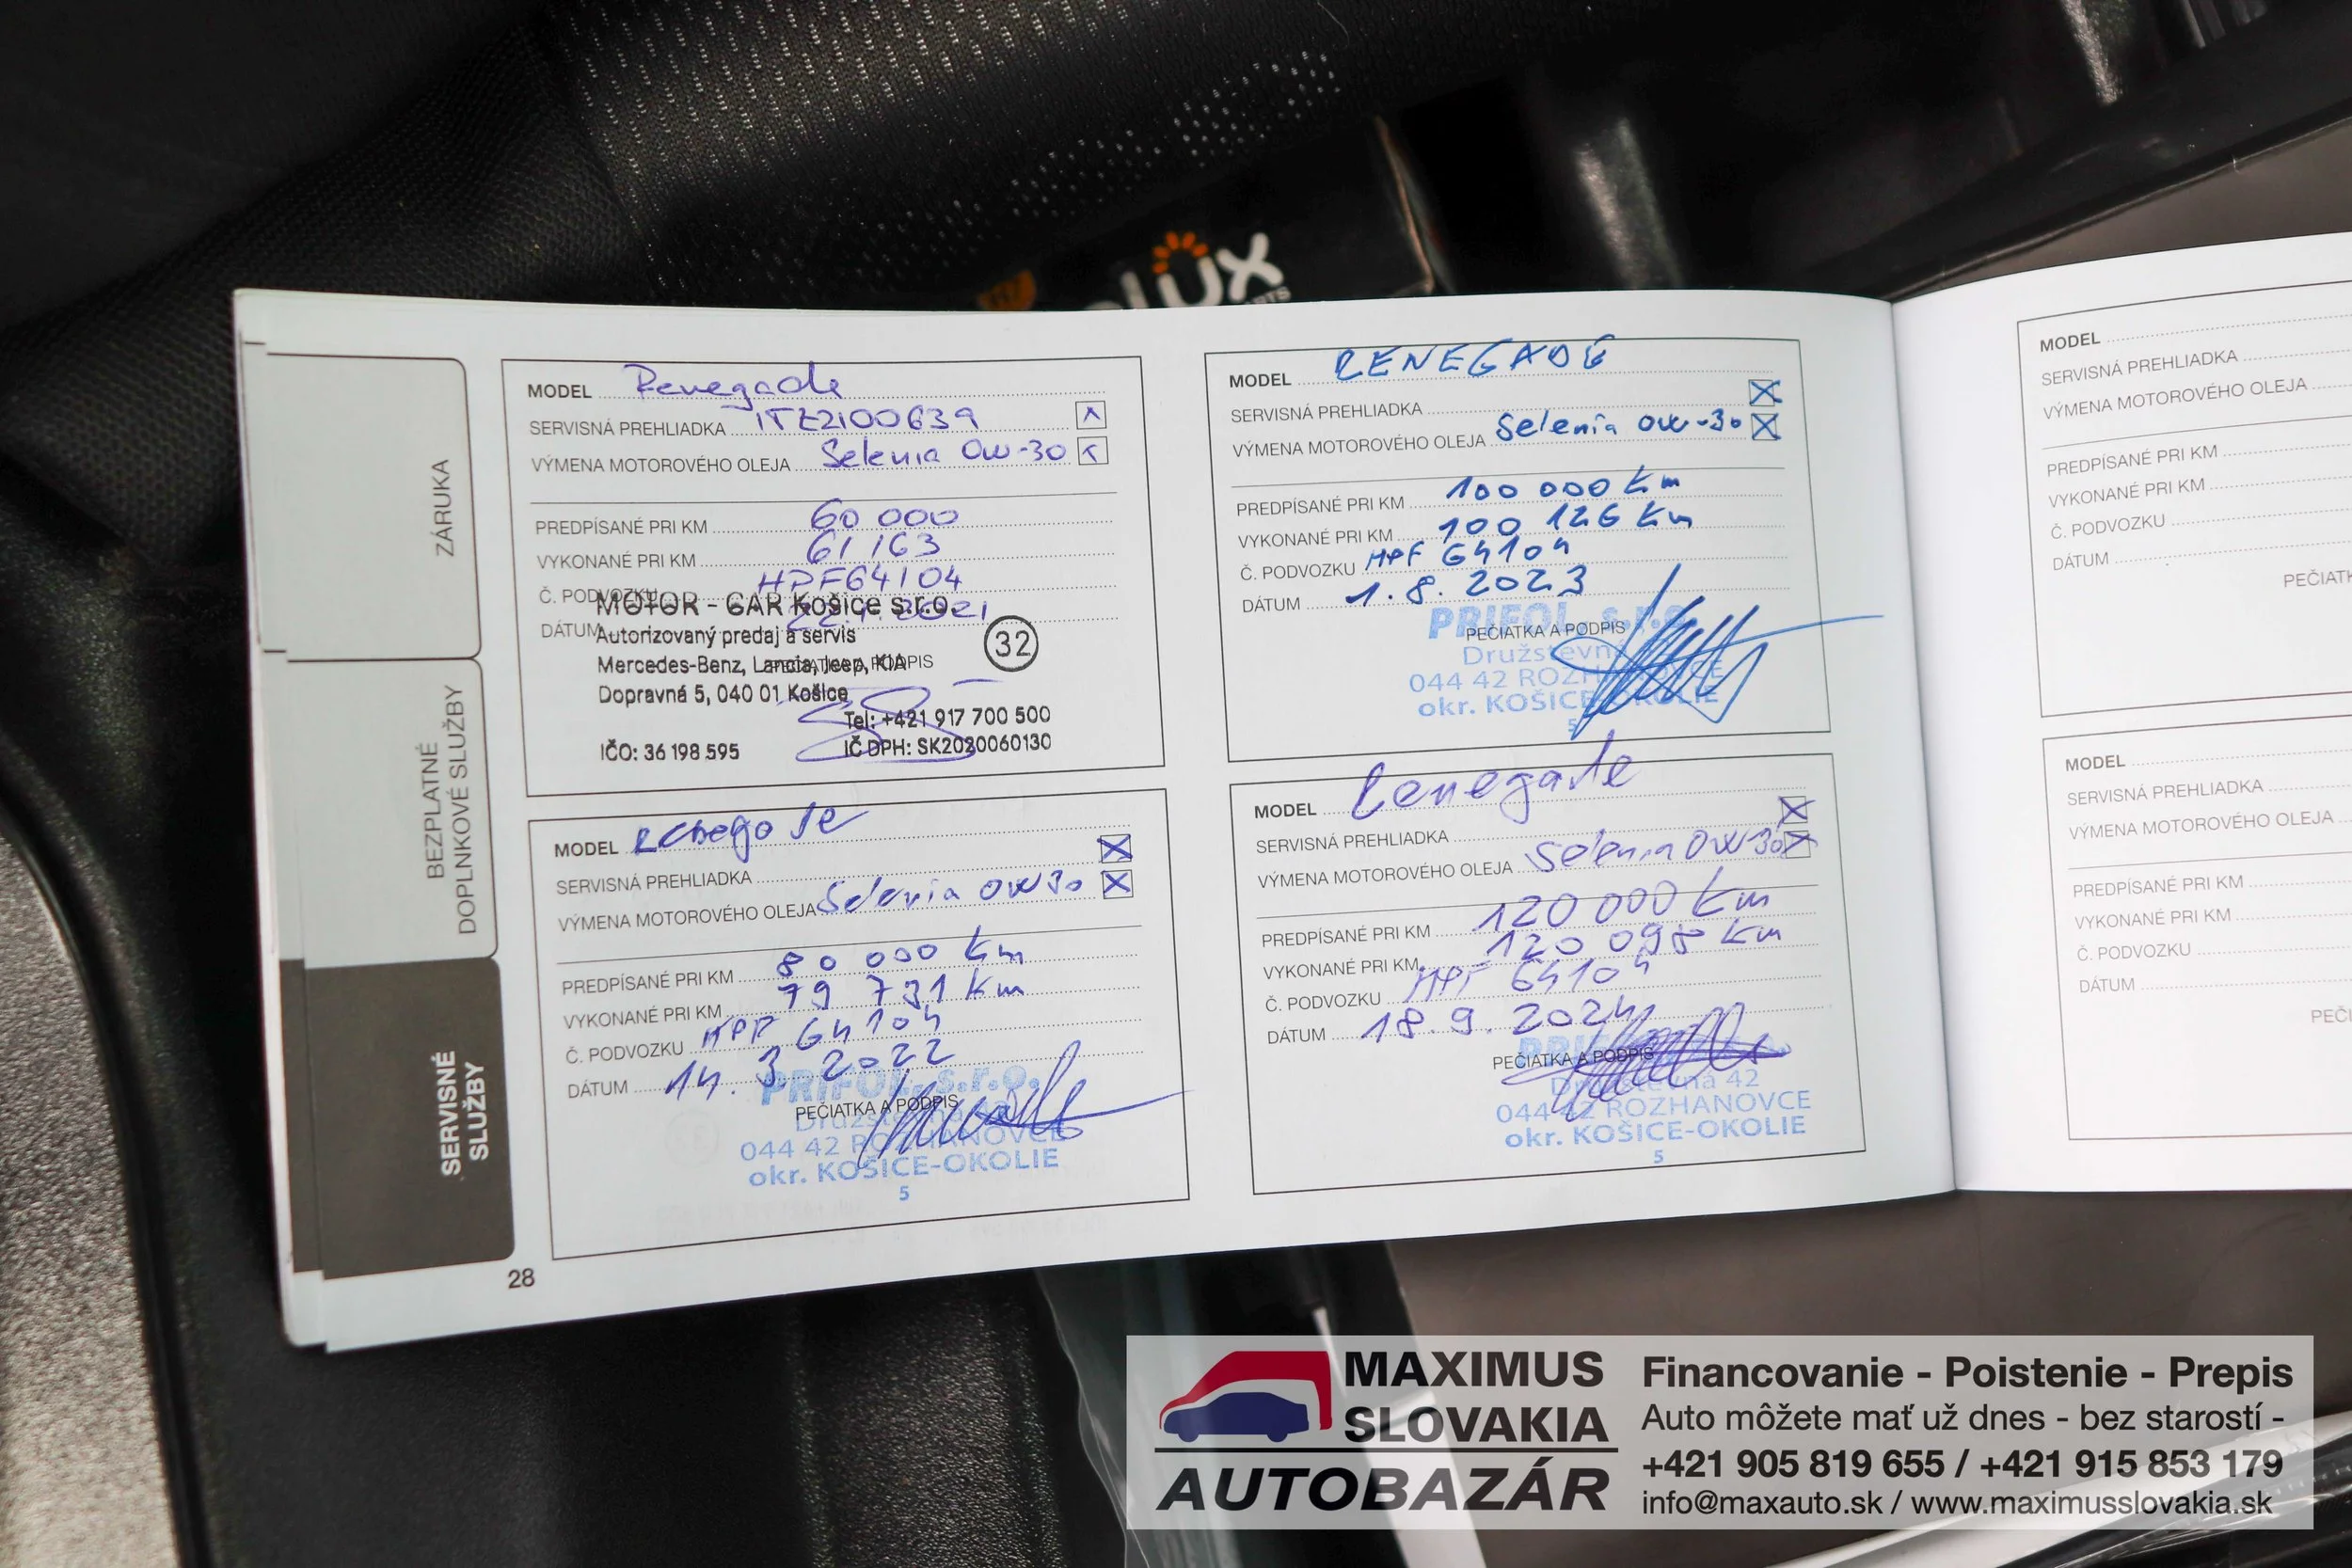 lux
ZÁRUKA
BEZPLATNÉ
DOPLNKOVÉ SLUŽBY
SERVISNÉ
SLUŽBY
MODEL Renegade
SERVISNÁ PREHLIADKA ITZ2100639
VÝMENA MOTOROVÉHO OLEJA Selenia 0W-30
PREDPÍSANÉ PRI KM 60 000
VYKONANÉ PRI KM 61 163
Č. PODVOZKU HPF64104
DÁTUM 2021
PEČIATKA A PODPIS
MOTOR - CAR Košice s.r.o.
Autorizovaný predaj a servis
32
Mercedes-Benz, Lancia, Jeep, KIA
Dopravná 5, 040 01 Košice
Tel: +421 917 700 500
IČO: 36 198 595 IČ DPH: SK2020060130
MODEL
SERVISNÁ PREHLIADKA
VÝMENA MOTOROVÉHO OLEJA Selenia 0W30
PREDPÍSANÉ PRI KM 80 000 km
VYKONANÉ PRI KM 79 731 km
Č. PODVOZKU HPF 64104
DÁTUM 14. 3. 2022
PEČIATKA A PODPIS
PRIFOL, s.r.o.
Družstevná
044 42 ROZHANOVCE
okr. KOŠICE-OKOLIE
5
28
MODEL RENEGADE
SERVISNÁ PREHLIADKA
VÝMENA MOTOROVÉHO OLEJA Selenia 0W-30
PREDPÍSANÉ PRI KM 100 000 km
VYKONANÉ PRI KM 100 126 km
Č. PODVOZKU HPF 64104
DÁTUM 1.8.2023
PEČIATKA A PODPIS
PRIFOL, s.r.o.
Družstevná
044 42 ROZHANOVCE
okr. KOŠICE-OKOLIE
5
MODEL Renegade
SERVISNÁ PREHLIADKA
VÝMENA MOTOROVÉHO OLEJA Selenia 0W-30
PREDPÍSANÉ PRI KM 120 000 km
VYKONANÉ PRI KM 120 098 km
Č. PODVOZKU HPF 64104
DÁTUM 18.9.2024
PEČIATKA A PODPIS
Družstevná 42
044 42 ROZHANOVCE
okr. KOŠICE-OKOLIE
5
MODEL
SERVISNÁ PREHLIADKA
VÝMENA MOTOROVÉHO OLEJA
PREDPÍSANÉ PRI KM
VYKONANÉ PRI KM
Č. PODVOZKU
DÁTUM
PEČIATK
MODEL
SERVISNÁ PREHLIADKA
VÝMENA MOTOROVÉHO OLEJA
PREDPÍSANÉ PRI KM
VYKONANÉ PRI KM
Č. PODVOZKU
DÁTUM
PEČI
MAXIMUS
SLOVAKIA
AUTOBAZÁR
Financovanie - Poistenie - Prepis
Auto môžete mať už dnes - bez starostí -
+421 905 819 655 / +421 915 853 179
info@maxauto.sk / www.maximusslovakia.sk